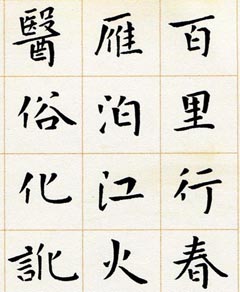 百里行春
雁泊江火
醫俗化訛